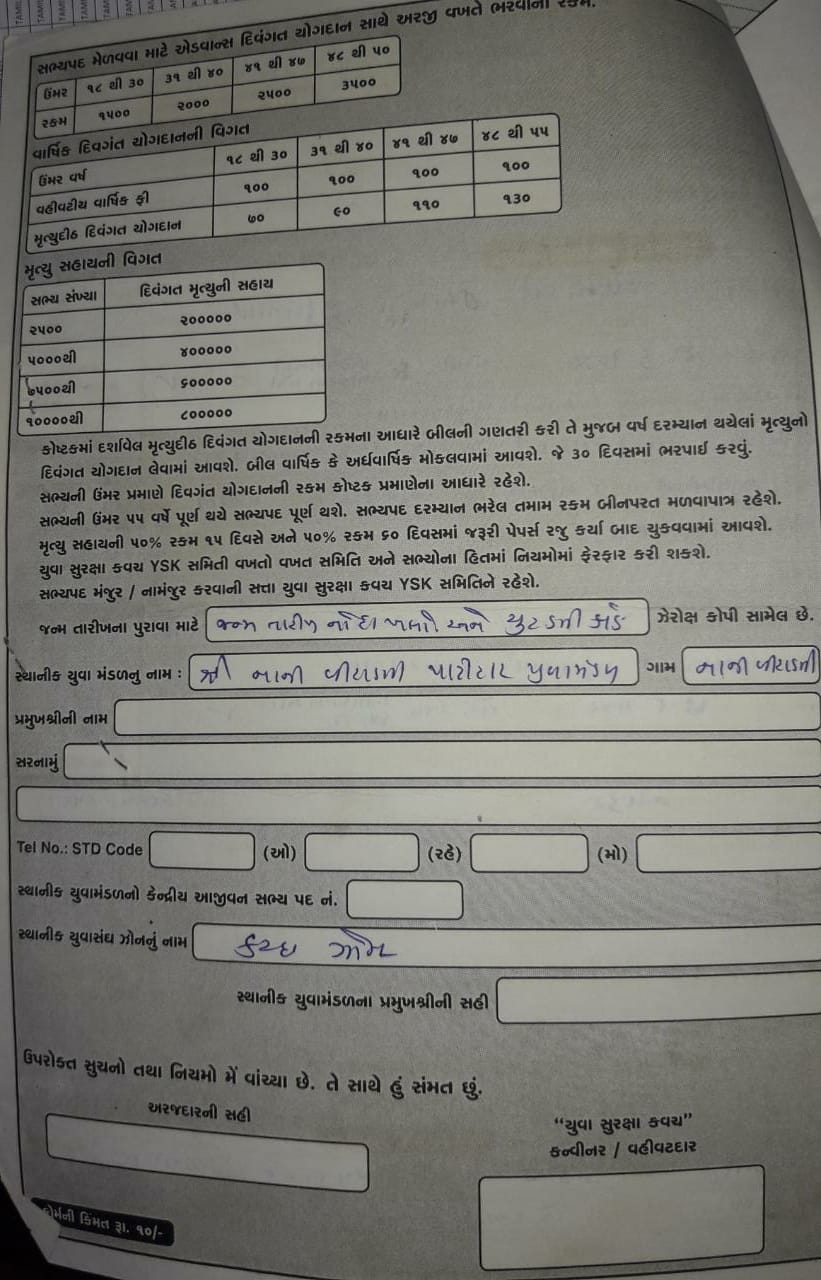 સભ્યપદ મેળવવા માટે એડવાન્સ દિવંગત યોગદાન સાથે અરજી વખતે ભરવાની રકમ.
ઉંમર ૧૮ થી ૩૦ ૩૧ થી ૪૦ ૪૧ થી ૪૭ ૪૮ થી ૫૦
રકમ ૧૫૦૦ ૨૦૦૦ ૨૫૦૦ ૩૫૦૦
વાર્ષિક દિવગંત યોગદાનની વિગત
ઉંમર વર્ષ ૧૮ થી ૩૦ ૩૧ થી ૪૦ ૪૧ થી ૪૭ ૪૮ થી ૫૫
વહીવટીય વાર્ષિક ફી ૧૦૦ ૧૦૦ ૧૦૦ ૧૦૦
મૃત્યુદીઠ દિવંગત યોગદાન ૭૦ ૯૦ ૧૧૦ ૧૩૦
મૃત્યુ સહાયની વિગત
સભ્ય સંખ્યા દિવંગત મૃત્યુની સહાય
૨૫૦૦ ૨૦૦૦૦૦
૫૦૦૦થી ૪૦૦૦૦૦
૭૫૦૦થી ૬૦૦૦૦૦
૧૦૦૦૦થી ૮૦૦૦૦૦
કોષ્ટકમાં દર્શાવેલ મૃત્યુદીઠ દિવંગત યોગદાનની રકમના આધારે બીલની ગણતરી કરી તે મુજબ વર્ષ દરમ્યાન થયેલાં મૃત્યુનો
દિવંગત યોગદાન લેવામાં આવશે. બીલ વાર્ષિક કે અર્ધવાર્ષિક મોકલવામાં આવશે. જે ૩૦ દિવસમાં ભરપાઈ કરવું.
સભ્યની ઉંમર પ્રમાણે દિવગંત યોગદાનની રકમ કોષ્ટક પ્રમાણેના આધારે રહેશે.
સભ્યની ઉંમર ૫૫ વર્ષે પૂર્ણ થયે સભ્યપદ પૂર્ણ થશે. સભ્યપદ દરમ્યાન ભરેલ તમામ રકમ બીનપરત મળવાપાત્ર રહેશે.
મૃત્યુ સહાયની ૫૦% રકમ ૧૫ દિવસે અને ૫૦% રકમ ૬૦ દિવસમાં જરૂરી પેપર્સ રજુ કર્યા બાદ ચુકવવામાં આવશે.
યુવા સુરક્ષા કવચ YSK સમિતી વખતો વખત સમિતિ અને સભ્યોના હિતમાં નિયમોમાં ફેરફાર કરી શકશે.
સભ્યપદ મંજુર / નામંજુર કરવાની સત્તા યુવા સુરક્ષા કવચ YSK સમિતિને રહેશે.
જન્મ તારીખના પુરાવા માટે જન્મ તારીખ નો દાખલો અને ચુટડની કાર્ડ ઝેરોક્ષ કોપી સામેલ છે.
સ્થાનીક યુવા મંડળનુ નામ : શ્રી નાની વીરાડની પાટીદાર યુવામંડળ ગામ નાની વીરાડની
પ્રમુખશ્રીની નામ
સરનામું
Tel No.: STD Code (ઓ) (રહે) (મો)
સ્થાનીક યુવામંડળનો કેન્દ્રીય આજીવન સભ્ય પદ નં.
સ્થાનીક યુવાસંઘ ઝોનનું નામ કચ્છ ઝોન
સ્થાનીક યુવામંડળના પ્રમુખશ્રીની સહી
ઉપરોક્ત સુચનો તથા નિયમો મેં વાંચ્યા છે. તે સાથે હું સંમત છું.
અરજદારની સહી
“યુવા સુરક્ષા કવચ”
કન્વીનર / વહીવટદાર
ફોર્મની કિંમત રૂા. ૧૦/-